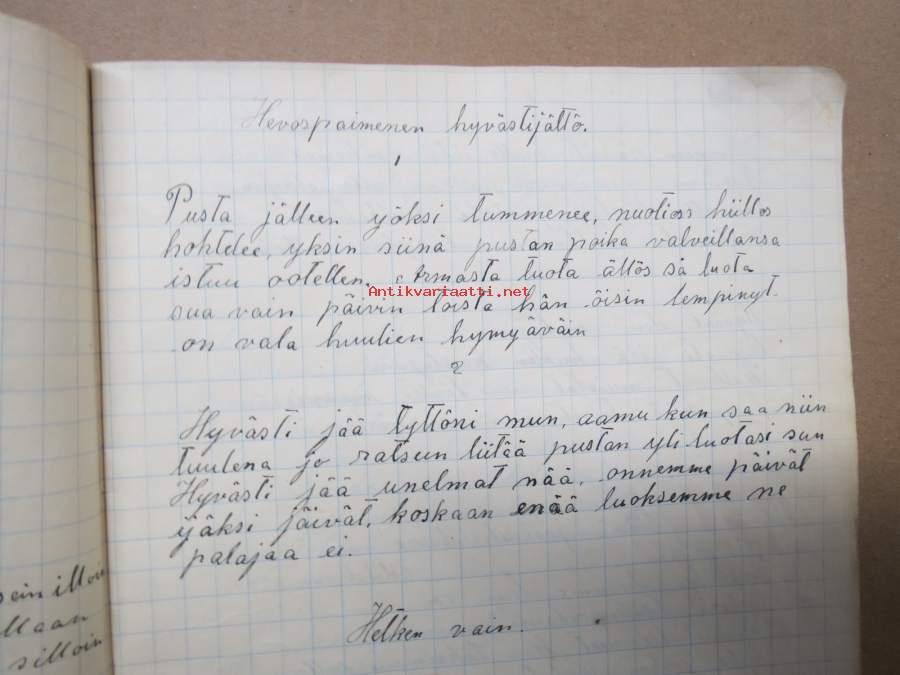 Hevospaimenen hyvästijättö.
1
Pusta jälleen yöksi tummenee, nuotioss hiillos
hohtelee, yksin siinä pustan poika valveillansa
istuu ootellen. Armasta tuota ällös sä luota
Antikvariaatti.net
sua vain päivin toista hän öisin lempinyt
on vala huulien hymyäväin
2
Hyvästi jää tyttöni mun, aamu kun saa niin
tuulena jo ratsun liitää pustan yli luotasi sun
Hyvästi jää unelmat nää, onnemme päivät
yäksi jäivät, koskaan enää luoksemme ne
palajaa ei.
Hetken vain.
sein illoin
llaan
silloin